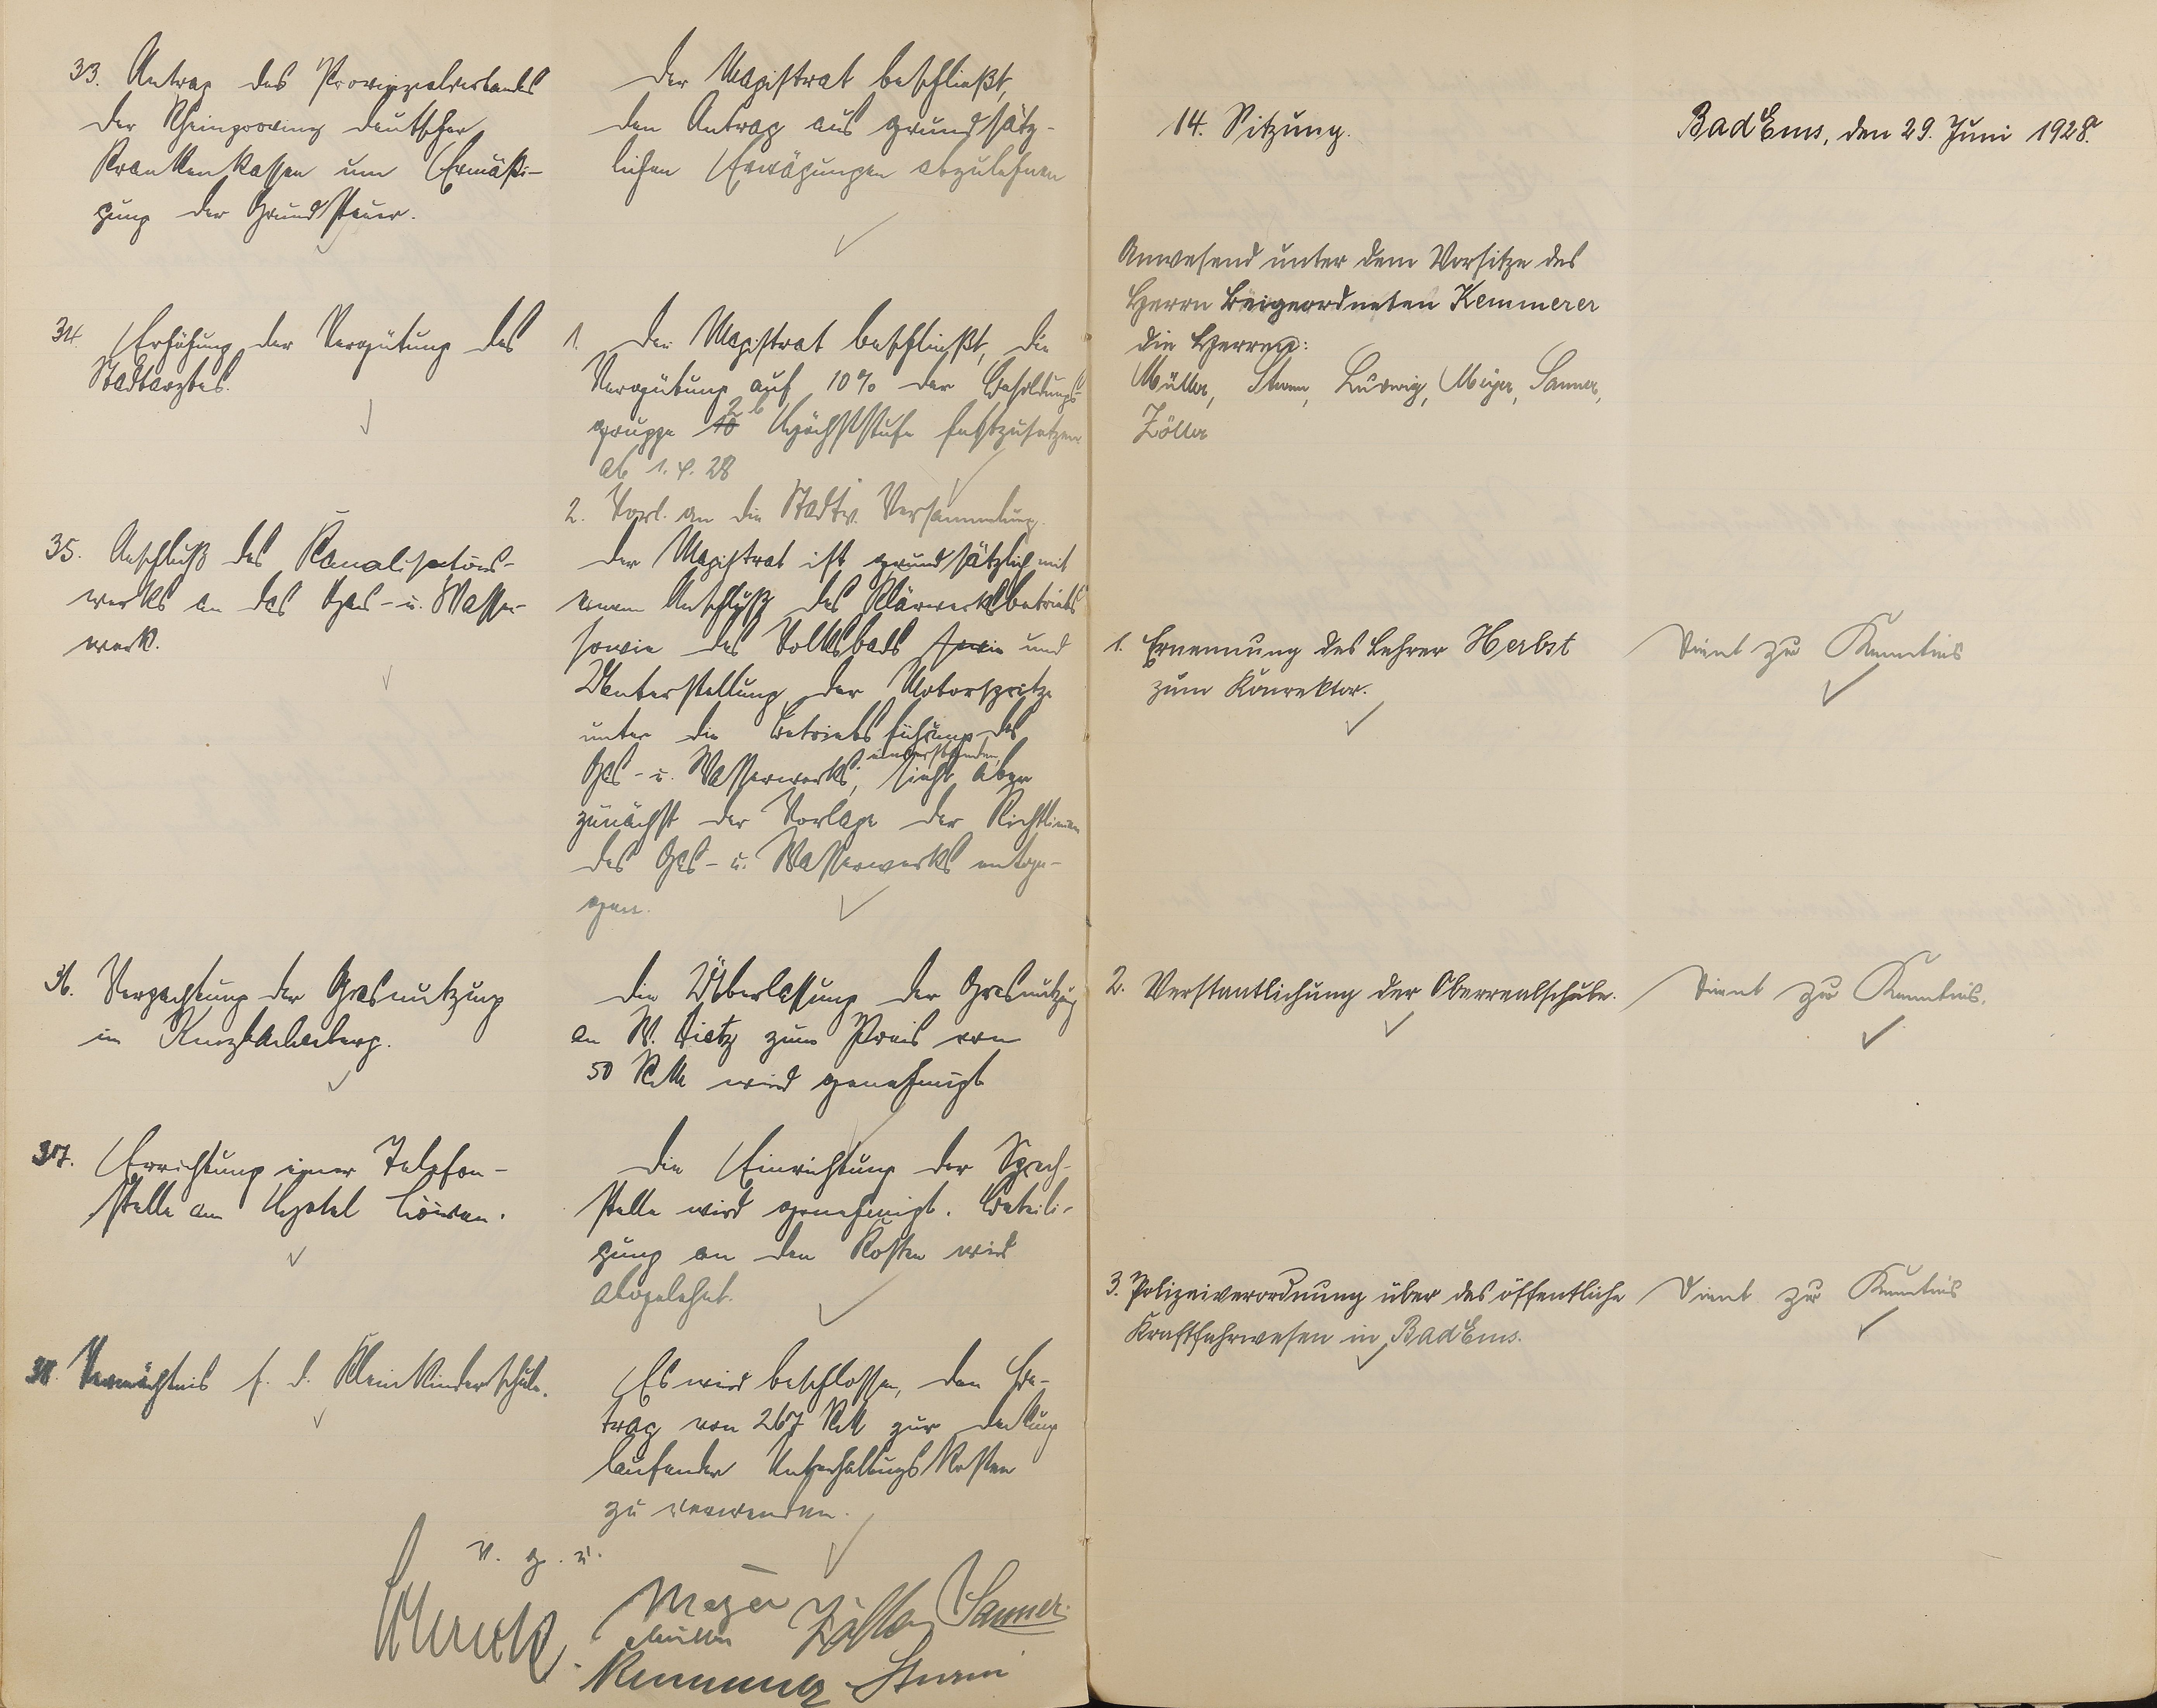 33. Antrag des Provinzialverbandes
der Rheinprovinz deutscher
Krankenkassen um Ermäßi-
gung der Grundsteuer.
Der Magistrat beschließt,
den Antrag aus grundsätz-
lichen Erwägungen abzulehnen
34. Erhöhung der Vergütung des
Stadtarztes.
1. Der Magistrat beschließt, die
Vergütung auf 10% der Besoldungs-
gruppe 10 2b Höchststufe festzusetzen
ab 1.4.28
2. Vorl. an die Stadtv. Versammlung.
35. Anschluß des Kanalisations-
werks an das Gas- u. Wasser-
werk.
Der Magistrat ist grundsätzlich mit
einem Anschluß des Klärwerksbetriebs
sowie des Volksbads sowie und
Unterstellung der Motorspritze
unter die Betriebsführung des
Gas- u. Wasserwerks, einverstanden, sieht aber
zunächst der Vorlage der Richtlinien
des Gas- u. Wasserwerks entge-
gen.
36. Verpachtung der Grasnutzung
im
Die Überlassung der Grasnutzung
an W. Dietz zum Preis von
50 RM wird genehmigt
37. Errichtung einer Telefon-
stelle am Hotel Löwen.
Die Einrichtung der Sprech-
stelle wird genehmigt. Beteili-
gung an den Kosten wird
abgelehnt.
38. Vermächtnis f. d. Kleinkinderschule.
Es wird beschlossen, den Be-
trag von 267 RM zur Deckung
laufender Unterhaltungskosten
zu verwenden.
v. g. u.
Meyer Zöller Sanner
Müller
Kemmerer Sturm
14. Sitzung.
Bad Ems, den 29. Juni 1928.
Anwesend unter dem Vorsitze des
Herrn Beigeordneten Kemmerer
die Herren:
Müller, Sturm, Ludwig, Meyer, Sanner,
Zöller
1. Ernennung des Lehrer Herbst
zum Konrektor.
Dient zur Kenntnis
2. Verstaatlichung der Oberrealschule.
Dient zur Kenntnis.
3. Polizeiverordnung über das öffentliche
Kraftfahrwesen in Bad Ems.
Dient zur Kenntnis